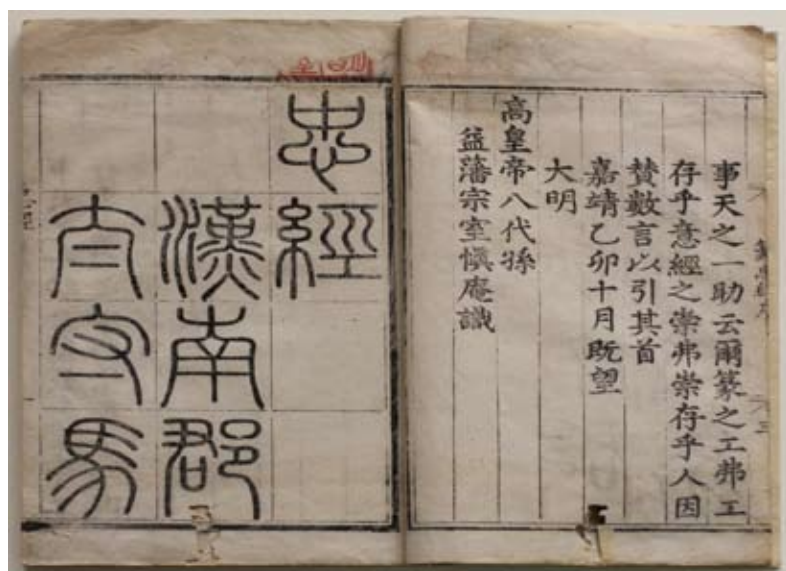 事天之一助云爾篆之工弗工
存乎意經之崇弗崇存乎人因
賛數言以引其首
嘉靖乙卯十月既望
大明
高皇帝八代孫
益藩宗室愼庵識
忠經
漢南郡
太守馬